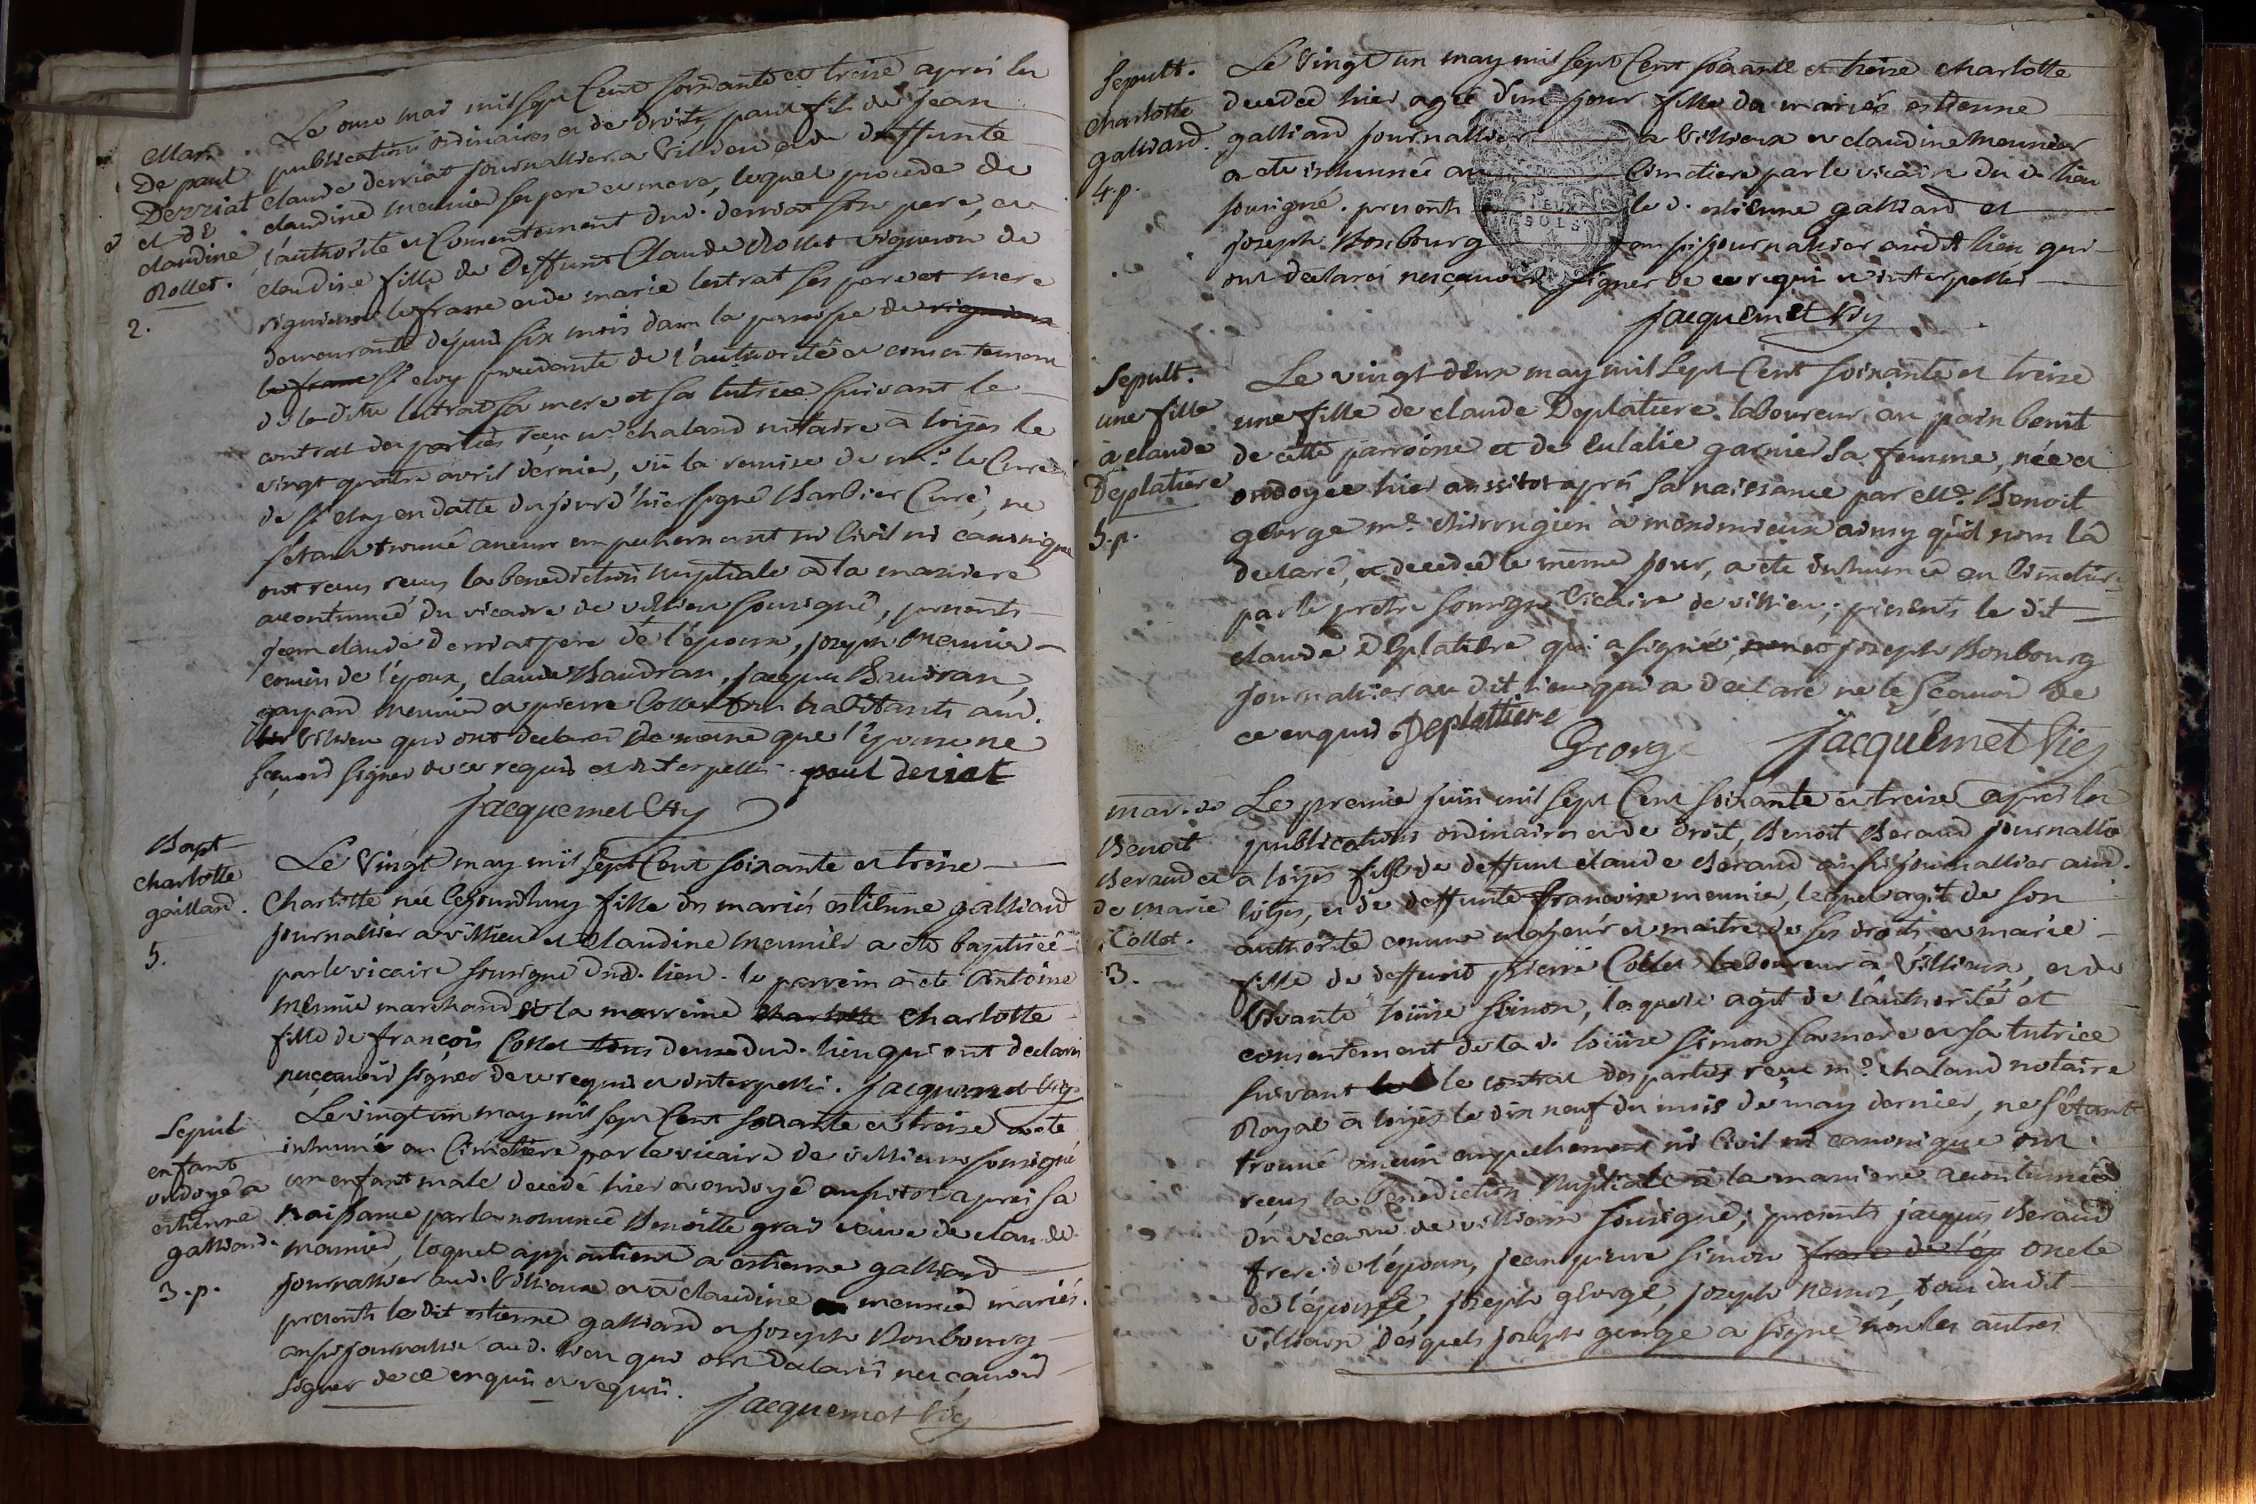 Mar.
De paul
Derriat
et de
claudine
Rollet.
2.
Le onze mai mil sept Cent soixante et treize après les
publications ordinaires et de droit, paul fils de jean
claude derriat journallier a Villieu et de deffunte
claudine meunier ses pere et mere, lequel procede de
l'authorité et Consentement dud. derriat son pere, et
claudine fille de Deffunt Claude Rollet vigneron de
rignieux le franc et de marie lestrat ses pere et mere
demeurante depuis six mois dans la paroisse de rignieux
le franc st eloy procedante de l'authorité et consentement
de la ditte lestrat sa mere et sa tutrice suivant le
contrat des parties reçu me chaland notaire a loijes le
vingt quatre avril dernier, vü la remise de mr. le Curé
de st eloy en datte du jourd'hier signé Barbier Curé, ne
s'etant trouvé aucun empechement ni civil ni canonique
ont reçus la benediction nuptiale a la maniere
acoutumée du vicaire de villieu sousigné, presents
jean claude derriat pere de l'epoux, joseph meunier
cousin de l'epoux, claude Baudran, jacques Baudran,
gaspard meunier et pierre Collet tous habitants aud.
Villieu qui ont declarés de meme que l'epouse ne
sçavoir signer de ce requis et interpellés. paul deriat
jacquemet Vic
Bapt
charlotte
gaillard.
5.
Le Vingt may mil sept Cent soixante et treize
Charlotte née le jourdhuy fille des mariés estienne galliard
journalier a villieu et Claudine meunier a ete baptisée
par le vicaire sousigné dud. lieu. le parrein a ete Antoine
meunier marchand et la marreine charlotte Charlotte
fille de françois Collet tous deux dud. lieu qui ont declarés
ne sçavoir signer de ce requis et interpellés. jacquemet Vic
Sepul
enfant
ondoyé a
estienne
galliard.
3.p.
Le vingt un may mil sept Cent soixante et treize a ete
inhumé au Cimetiere par le vicaire de villieux sousigné
un enfant male decedé hier et ondoyé aussitot apres sa
naissance par la nommée Benoitte gras veuve de claude
meunier, lequel appartient a estienne galliard
journallier aud. Villieux et a claudine meunier mariés.
presents le dit estienne galliard et joseph Bonbourg
aussi journallier aud. lieu qui ont declarés ne sçavoir
signer de ce enquis et requis.
jacquemet Vic
Sepult.
Charlotte
galliard.
4.p.
Le Vingt un may mil sept Cent soixante et treize charlotte
decedée hier agée d'un jour fille des mariés estienne
galliard journallier a Villieux et claudine meunier
a ete inhumée au Cimetiere par le vicaire du d. lieu
sousigné. presents le d. estienne galliard et
joseph Bonbourg aussi journalier audit lieu qui
ont declarés ne sçavoir signer de ce requis et interpellés
jacquemet Vic
DEUX
SOLS
Sepult.
une fille
a claude
Deplatiere
5.p.
Le vingt deux may mil sept Cent soixante et treize
une fille de claude Deplatiere laboureur au pain benit
de cette parroisse et de Eulalie garnier sa femme, née et
ondoyée hier aussitot après sa naissance par Me. Benoit
george me. chirurgien a monimieux ainsy qu'il nous l'a
declaré, et decedée le même jour, a ete inhumée au Cimetiere
par le pretre sousigné Vicaire de villieu; presents le dit
claude Deplatiere qui a signé, joseph Bonbourg
journalier au dit lieu qui a declaré ne le sçavoir de
ce enquis. Deplattiere
George jacquemet Vic
mar. de
Benoit
Beraud et
de marie
Collet.
3.
Le premier juin mil sept Cent soixante et treize après les
publications ordinaires et de droit, Benoit Beraud journallier
a loijes fils de deffunt claude Beraud aussi journallier aud.
loijes, et de deffunte françoise meunier, lequel agit de son
authorité comme majeur et maitre de ses droits et marie
fille de deffunt pierre Collet laboureur a Villieux, et de
Vivante loüise simon, laquelle agit de l'authorité et
consentement de la d. loüise simon sa mere et sa tutrice
suivant le contrat des parties reçu me. chaland notaire
Royal a loijes le dix neuf du mois de may dernier, ne s'étant
trouvé aucun empechement ni Civil ni canonique ont
reçus la benediction Nuptiale a la maniere acoutumée
du vicaire de villieux sousigné; presents jacques Beraud
frere de l'époux, jean pierre simon frere de l'ep oncle
de l'épouse, joseph george, joseph, tous dudit
villieux desquels joseph george a signé non les autres